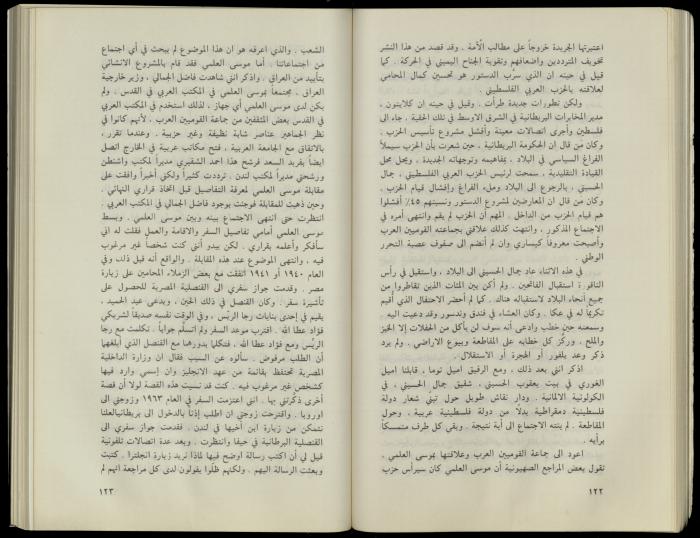 اعتبرتها الجريدة خروجاً على مطالب الأمة . وقد قصد من هذا النشر
تخويف المترددين واضعافهم وتقوية الجناح اليميني في الحركة . كما
قيل في حينه ان الذي سرّب الدستور هو تحسين كمال المحامي
لعلاقته بالحزب العربي الفلسطيني .
ولكن تطورات جديدة طرأت . وقيل في حينه ان كلايتون ،
مدير المخابرات البريطانية في الشرق الاوسط في تلك الحقبة ، جاء الى
فلسطين وأجرى اتصالات معينة وأفشل مشروع تأسيس الحزب .
وكان من قال ان الحكومة البريطانية ، حين شعرت بأن الحزب سيملأ
الفراغ السياسي في البلاد ، بمفاهيمه وتوجهاته الجديدة ، ويحل محل
القيادة التقليدية ، سمحت لرئيس الحزب العربي الفلسطيني ، جمال
الحسيني ، بالرجوع الى البلاد وملء الفراغ وإفشال قيام الحزب .
وكان من قال ان المعارضين لمشروع الدستور ونسبتهم ٤٥٪ أفشلوا
هم قيام الحزب من الداخل . المهم أن الحزب لم يقم وانتهى أمره في
الاجتماع المذكور ، وانتهت كذلك علاقتي بجماعة القوميين العرب
وأصبحت معروفاً كيساري وان لم أنضم الى صفوف عصبة التحرر
الوطني .
في هذه الاثناء عاد جمال الحسيني الى البلاد ، واستقبل في رأس
الناقورة استقبال الفاتحين . ولم أكن بين المئات الذين تقاطروا من
جميع أنحاء البلاد لاستقباله هناك . كما لم أحضر الاحتفال الذي أقيم
تكريماً له في عكا . وكان العشاء في فندق وندسور وقد دعيت اليه .
وسمعته حين خطب وادعى أنه سوف لن يأكل من الحفلات إلا الخبز
والملح . وركّز كل خطابه على المقاطعة وبيوع الاراضي . ولم يرد
ذكر وعد بلفور أو الهجرة أو الاستقلال .
اذكر انني بعد ذلك ، ومع الرفيق اميل توما ، قابلنا اميل
الغوري في بيت يعقوب الحسيني ، شقيق جمال الحسيني ، في
الكولونية الالمانية . ودار نقاش طويل حول تبني شعار دولة
فلسطينية دمقراطية بدلاً من دولة فلسطينية عربية ، وحول
المقاطعة . لم ينته الاجتماع الى أية نتيجة . وبقي كل طرف متمسكاً
برأيه .
اعود الى جماعة القوميين العرب وعلاقتها بموسى العلمي .
تقول بعض المراجع الصهيونية أن موسى العلمي كان سيرأس حزب
١٢٢
الشعب . والذي اعرفه هو ان هذا الموضوع لم يبحث في أي اجتماع
من اجتماعاتنا . أما موسى العلمي فقد قام بالمشروع الانشائي
بتأييد من العراق . واذكر انني شاهدت فاضل الجمالي ، وزير خارجية
العراق ، مجتمعاً بموسى العلمي في المكتب العربي في القدس . ولم
يكن لدى موسى العلمي أي جهاز ، لذلك استخدم في المكتب العربي
في القدس بعض المثقفين من جماعة القوميين العرب ، لأنهم كانوا في
نظر الجماهير عناصر شابة نظيفة وغير حزبية . وعندما تقرر ،
بالاتفاق مع الجامعة العربية ، فتح مكاتب عربية في الخارج اتصل
ايضاً بفريد السعد فرشح هذا احمد الشقيري مديراً لمكتب واشنطن
ورشحني مديراً لمكتب لندن . ترددت كثيراً ولكني أخيراً وافقت على
مقابلة موسى العلمي لمعرفة التفاصيل قبل اتخاذ قراري النهائي .
وحين ذهبت للمقابلة فوجئت بوجود فاضل الجمالي في المكتب العربي .
انتظرت حتى انتهى الاجتماع بينه وبين موسى العلمي . وبسط
موسى العلمي أمامي تفاصيل السفر والاقامة والعمل فقلت له اني
سأفكر وأعلمه بقراري . لكن يبدو أنني كنت شخصاً غير مرغوب
فيه ، وانتهى الموضوع عند هذه المقابلة . والواقع أنه قبل ذلك وفي
العام ١٩٤٠ أو ١٩٤١ اتفقت مع بعض الزملاء المحامين على زيارة
مصر . وقدمت جواز سفري الى القنصلية المصرية للحصول على
تأشيرة سفر . وكان القنصل في ذلك الحين ، ويدعى عبد الحميد ،
يقيم في إحدى بنايات رجا الريّس ، وفي الوقت نفسه صديقاً لشريكي
فؤاد عطا الله . اقترب موعد السفر ولم اتسلّم جواباً . تكلمت مع رجا
الريّس ومع فؤاد عطا الله ، فتكلّما بدورهما مع القنصل الذي أبلغهما
أن الطلب مرفوض . سألوه عن السبب فقال ان وزارة الداخلية
المصرية تحتفظ بقائمة من عهد الانجليز وان إسمي وارد فيها
كشخص غير مرغوب فيه . كنت قد نسيت هذه القصة لولا أن قصة
أخرى ذكّرتني بها . انني اعتزمت السفر في العام ١٩٦٣ وزوجتي الى
اوروبا . واقترحت زوجتي ان اطلب إذناً بالدخول الى بريطانيالعلنا
نتمكن من زيارة ابن أخيها في لندن . فقدمت جواز سفري الى
القنصلية البرطانية في حيفا وانتظرت . وبعد عدة اتصالات تلفونية
قيل لي أن اكتب رسالة اوضح فيها لماذا نريد زيارة انجلترا . كتبت
وبعثت الرسالة اليهم . ولكنهم ظلّوا يقولون لدى كل مراجعة انهم لم
١٢٣